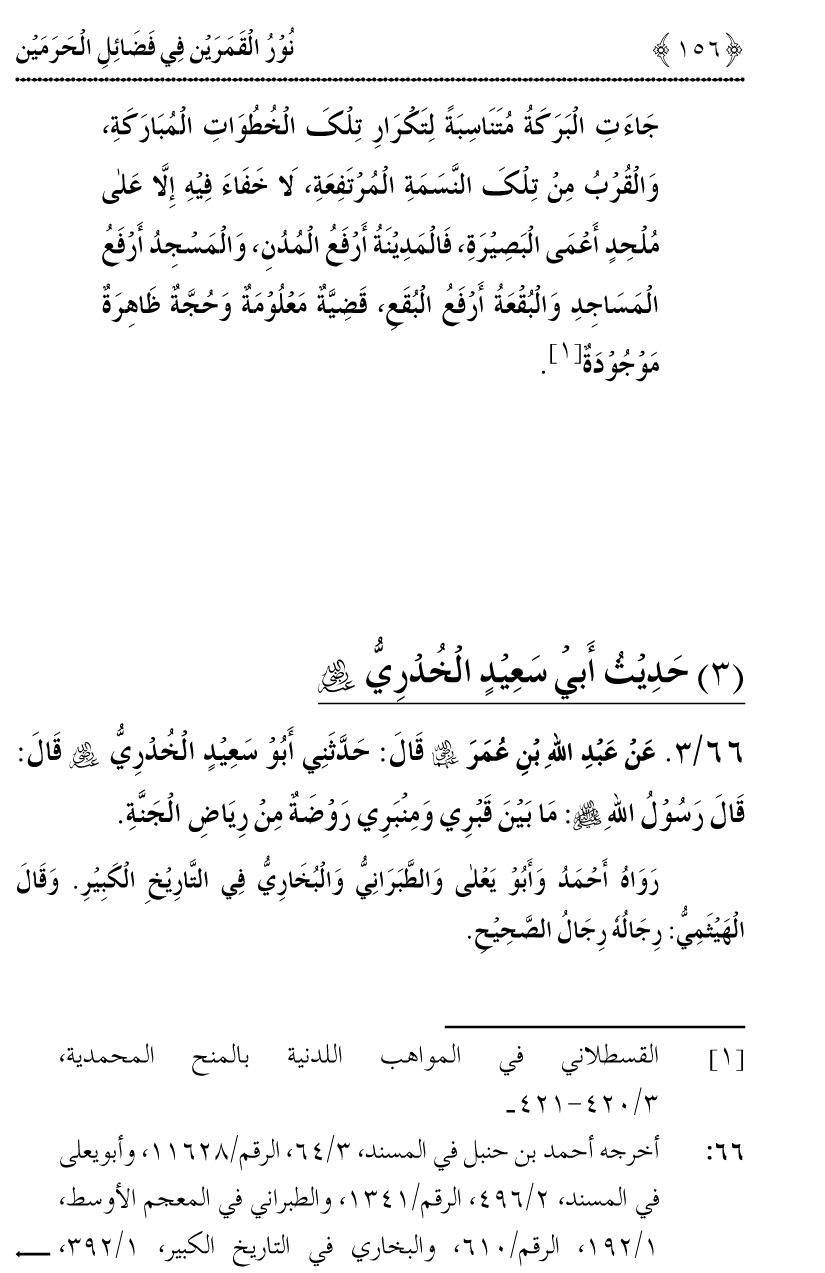 ﴿١٥٦﴾ نُوْرُ الْقَمَرَيْن فِي فَضَائِلِ الْحَرَمَيْن
جَاءَتِ الْبَرَكَةُ مُتَنَاسِبَةً لِتَكْرَارِ تِلْكَ الْخُطُوَاتِ الْمُبَارَكَةِ،
وَالْقُرْبُ مِنْ تِلْكَ النَّسَمَةِ الْمُرْتَفِعَةِ، لَا خَفَاءَ فِيْهِ إِلَّا عَلٰى
مُلْحِدٍ أَعْمَى الْبَصِيْرَةِ، فَالْمَدِيْنَةُ أَرْفَعُ الْمُدُنِ، وَالْمَسْجِدُ أَرْفَعُ
الْمَسَاجِدِ وَالْبُقْعَةُ أَرْفَعُ الْبُقَعِ، قَضِيَّةٌ مَعْلُوْمَةٌ وَحُجَّةٌ ظَاهِرَةٌ
مَوْجُوْدَةٌ[١].
(٣) حَدِيْثُ أَبِيْ سَعِيْدٍ الْخُدْرِيِّ رضي الله عنه
٣/٦٦. عَنْ عَبْدِ اللهِ بْنِ عُمَرَ رضي الله عنهما قَالَ: حَدَّثَنِي أَبُوْ سَعِيْدٍ الْخُدْرِيُّ رضي الله عنه قَالَ:
قَالَ رَسُوْلُ اللهِ ﷺ: مَا بَيْنَ قَبْرِي وَمِنْبَرِي رَوْضَةٌ مِنْ رِيَاضِ الْجَنَّةِ.
رَوَاهُ أَحْمَدُ وَأَبُوْ يَعْلٰى وَالطَّبَرَانِيُّ وَالْبُخَارِيُّ فِي التَّارِيْخِ الْكَبِيْرِ. وَقَالَ
الْهَيْثَمِيُّ: رِجَالُهُ رِجَالُ الصَّحِيْحِ.
[١] القسطلاني في المواهب اللدنية بالمنح المحمدية،
٣/٤٢٠-٤٢١ـ
٦٦: أخرجه أحمد بن حنبل في المسند، ٣/٦٤، الرقم/١١٦٢٨، وأبويعلى
في المسند، ٢/٤٩٦، الرقم/١٣٤١، والطبراني في المعجم الأوسط،
١/١٩٢، الرقم/٦١٠، والبخاري في التاريخ الكبير، ١/٣٩٢،